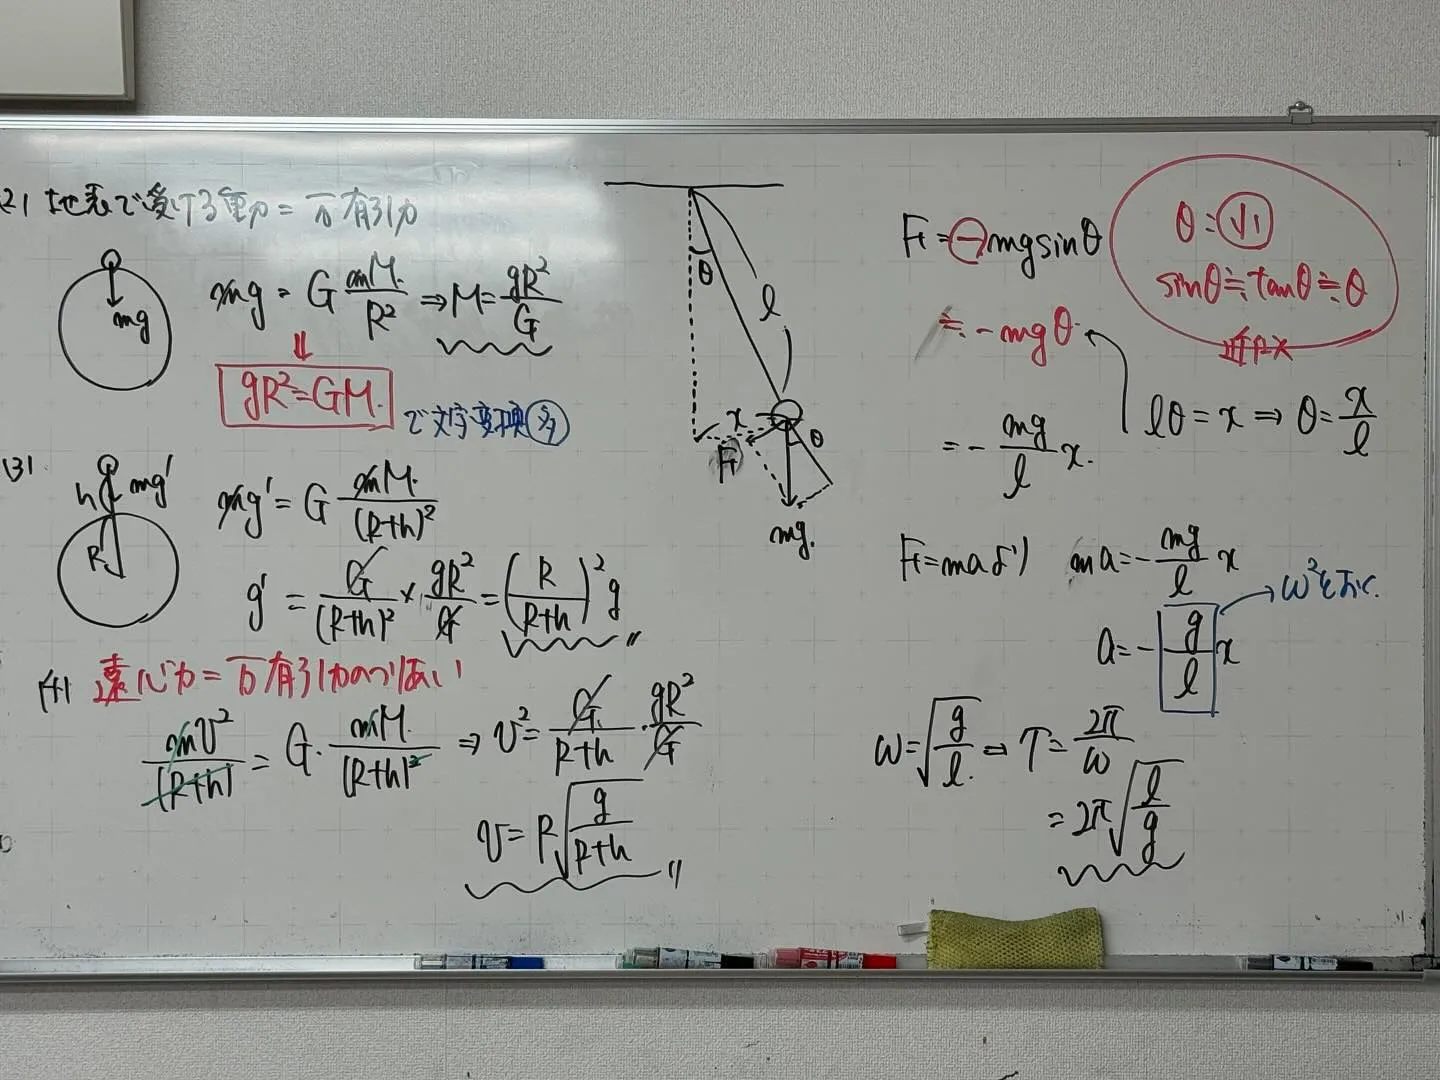 (2) 地表で受ける重力 = 万有引力
mg
mg = G mM/R² ⇒ M = gR²/G
⇓
gR² = GM. で文字変換多
(3)
h mg'
R
mg' = G mM/(R+h)²
g' = G/(R+h)² × gR²/G = (R/(R+h))² g 〃
(4) 遠心力 = 万有引力のつりあい
mv²/(R+h) = G・mM/(R+h)² ⇒ v² = G/(R+h)・gR²/G
v = R√(g/(R+h)) 〃
θ
l
x
θ
F
mg.
F = -mg sinθ
≒ -mgθ
= -mg/l x.
θ = 小
sinθ ≒ tanθ ≒ θ
近似
lθ = x ⇒ θ = x/l
F = maより ma = -mg/l x
a = -g/l x → ω²とおく.
ω = √(g/l) ⇒ T = 2π/ω
= 2π√(l/g)